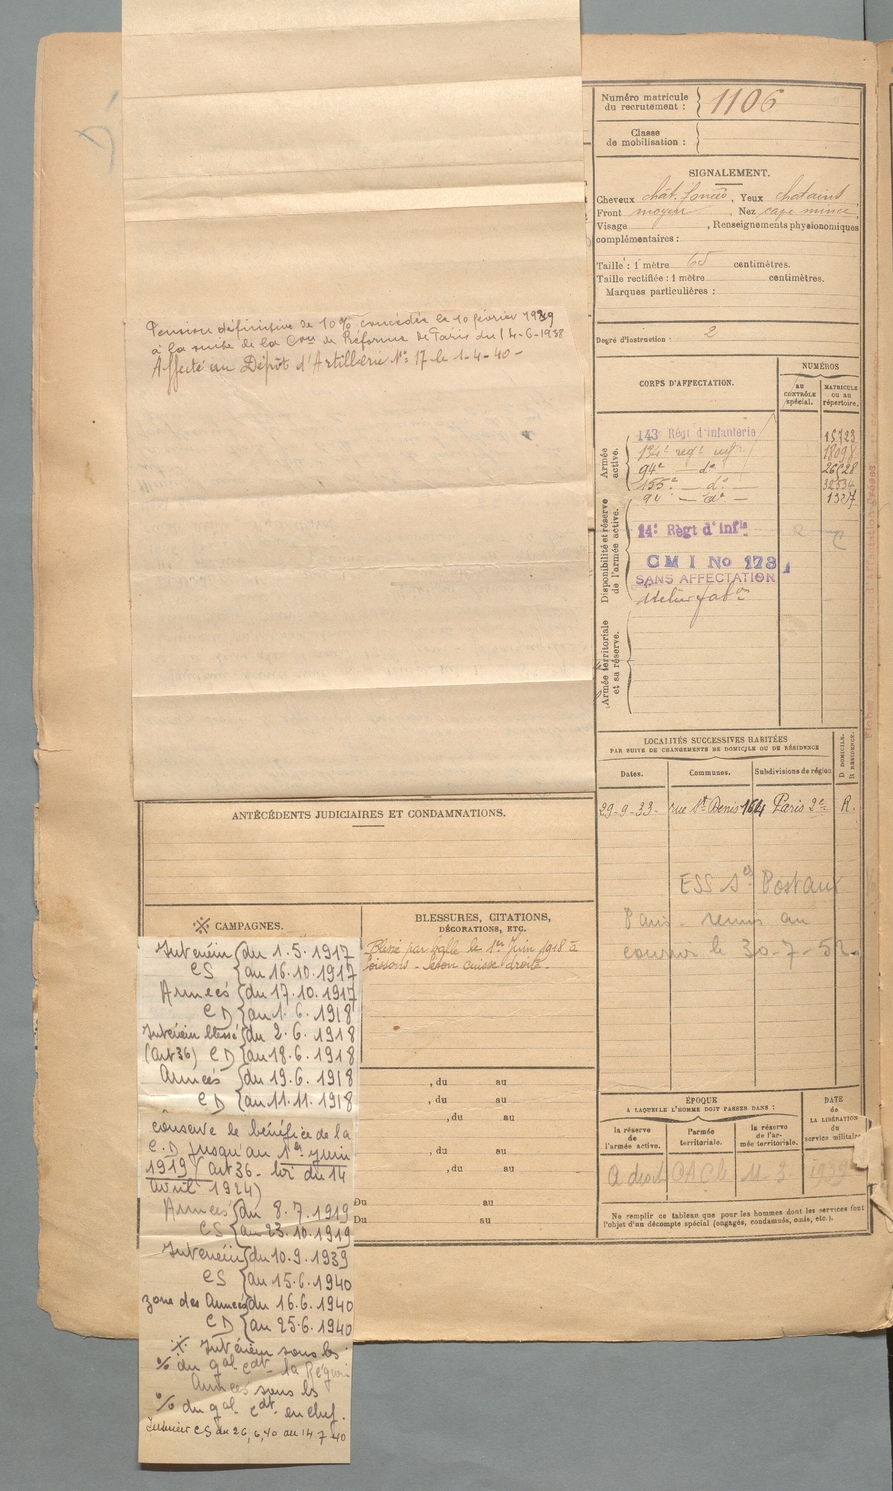 Numéro matricule
du recrutement : 1106
Classe
de mobilisation :
SIGNALEMENT.
Cheveux chât. foncés, Yeux chatains
Front moyen, Nez cave mince,
Visage , Renseignements physionomiques
complémentaires :
Taille : 1 mètre 65 centimètres.
Taille rectifiée : 1 mètre centimètres.
Marques particulières :
Degré d'instruction : 2
Pension définitive de 10% concédée le 10 février 1939
à la suite de la Con de Réforme de Paris du 14-6-1938
Affecté au Dépôt d'Artillerie No 17 le 1-4-40 -
CORPS D'AFFECTATION.
NUMÉROS
AU CONTRÔLE spécial.
MATRICULE OU AU répertoire.
Armée active.
143 Régt d'Infanterie 15723
134e regt 18098
94e — do 26528
155e — do 32534
90 — do — 1327
Disponibilité et réserve
de l'armée active.
14e Régt d'infie
CMI No 178
SANS AFFECTATION
Armée territoriale
et sa réserve.
LOCALITÉS SUCCESSIVES HABITÉES
PAR SUITE DE CHANGEMENTS DE DOMICILE OU DE RÉSIDENCE
Dates. Communes. Subdivisions de région
D DOMICILE.
R RÉSIDENCE.
29-9-33- rue St Denis 164 Paris 2e R.
ESS Postaux
Paris - remis au
le 30-7-52.
ANTÉCÉDENTS JUDICIAIRES ET CONDAMNATIONS.
※ CAMPAGNES.
Intérieur {du 1.5.1917
CS {au 16.10.1917
Armées {du 17.10.1917
CD {au 1.6.1918
Intérieur blessé {du 2.6.1918
(art 36) CD {au 18.6.1918
Armées {du 19.6.1918
CD {au 11.11.1918
conserve le bénéfice de la
C.D jusqu'au 1er juin
1919 (art 36 - loi du 14
avril 1924)
Armées {du 8.7.1919
CS {au 23.10.1919
Intérieur {du 10.9.1939
CS {au 15.6.1940
zone des Armées {du 16.6.1940
CD {au 25.6.1940
※ Intérieur sous les
% du gal cdt la Région
Armées sous les
% du gal cdt en chef.
Intérieur CS du 26,6,40 au 14 7 40
BLESSURES, CITATIONS,
DÉCORATIONS, ETC.
Blessé par balle le 1er Juin 1918 à
Soissons - séton cuisse droite.
, du au
, du au
, du au
, du au
, du au
Du au
Du au
ÉPOQUE
A LAQUELLE L'HOMME DOIT PASSER DANS :
la réserve
de
l'armée active.
l'armée
territoriale.
la réserve
de l'ar-
mée territoriale.
DATE
de
LA LIBÉRATION
du
service militaire
Ne remplir ce tableau que pour les hommes dont les services font
l'objet d'un décompte spécial (engagés, condamnés, omis, etc.).